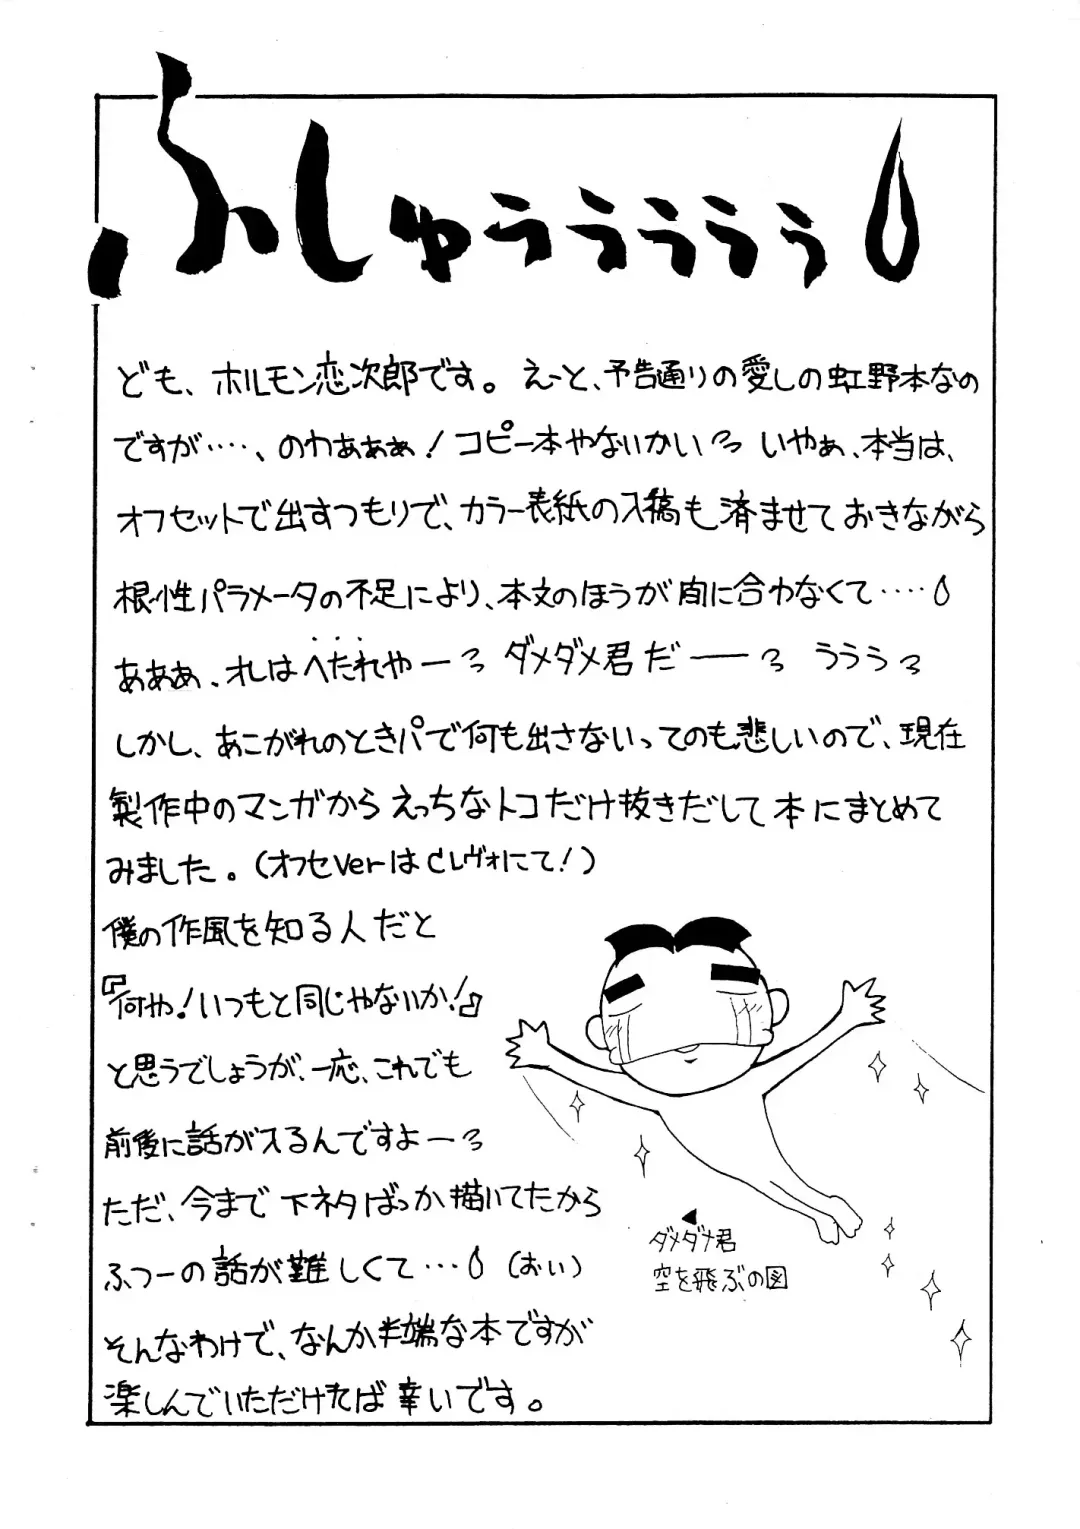 ふしゅぅぅぅぅぅ
ども、ホルモン恋次郎です。えーと、予告通りの愛しの虹野本なの
ですが‥‥、のわあぁぁ!コピー本やないかいっ いやぁ、本当は、
オフセットで出すつもりで、カラー表紙の入稿も済ませておきながら
根性パラメータの不足により、本文のほうが間に合わなくて‥‥
あぁぁぁ、オレはへたれやーっ ダメダメ君だ──っ うぅぅっ
しかし、あこがれのときパで何も出さないってのも悲しいので、現在
製作中のマンガからえっちなトコだけ抜きだして本にまとめて
みました。(オフセverはCレヴォにて!)
僕の作風を知る人だと
『何や!いつもと同じゃないか!』
と思うでしょうが、一応、これでも
前後に話が入るんですよーっ
ただ、今まで下ネタばっか描いてたから
ふつーの話が難しくて‥‥(おぃ)
そんなわけで、なんか半端な本ですが
楽しんでいただければ幸いです。
◀
ダメダメ君
空を飛ぶの図